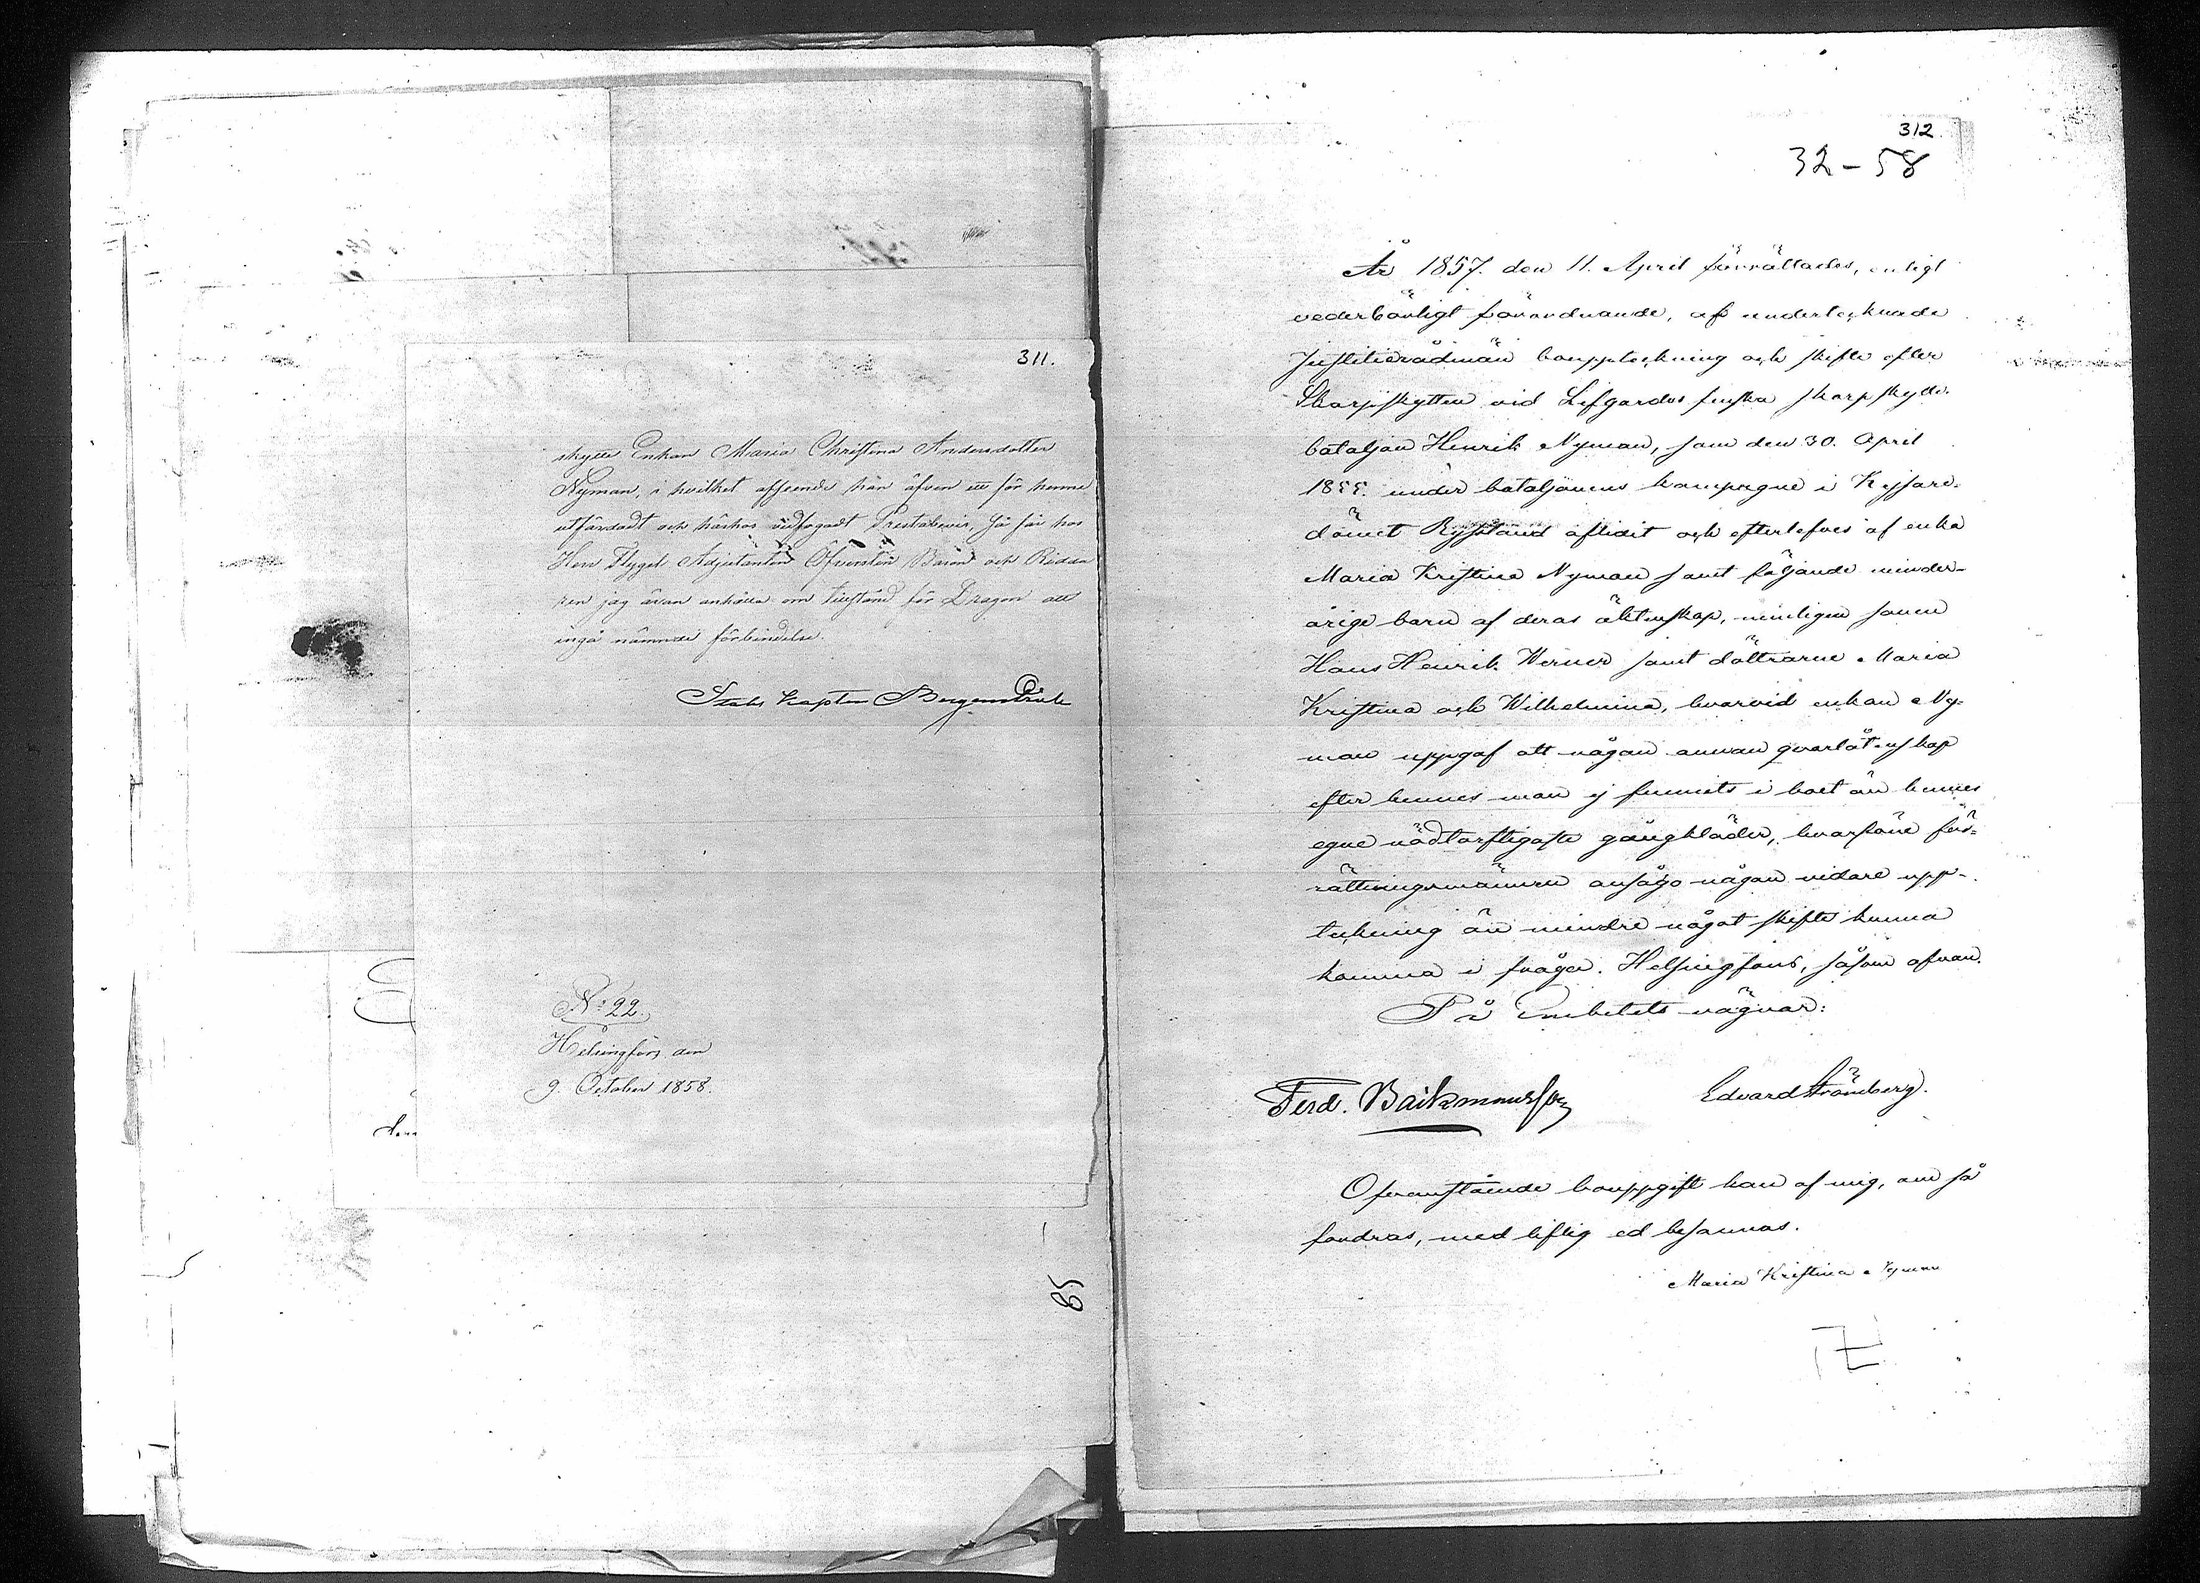 311.
skytte Enkan Maria Christina Andersdotter
Nyman, i hvilket afseende han äfven ett för henne
utfärdadt och härhos vidfogadt Prestabevis, Så får hos
Herr Flygel Adjutanten Öfversten Baron och Ridda
ren jag äran anhålla om tillstånd för Dragon att
ingå nämnde förbindelse.
Stabs Kapten Bergenstråle
No 22.
Helsingfors den
9. October 1858.
85
312.
32-58
År 1857. den 11. April förrättades, enligt
vederbörligt förordnande, af undertecknade
Justitierådmän bouppteckning och skifte efter
Skarpskytten vid Lifgardes finska skarpskytte-
bataljon Henrik Nyman, som den 30. April
1855. under bataljonens kampagne i Kejsare-
dömet Ryssland aflidit och efterlefves af enka
Maria Kristina Nyman samt följande minder-
årige barn af deras äktenskap, nemligen sonen
Hans Henrik Werner samt döttrarne Maria
Kristina och Wilhelmina, hvarvid enkan Ny-
man uppgaf att någon annan qvarlåtenskap
efter hennes man ej funnits i boet än hennes
egne nödtorftigaste gångkläder, hvarföre för-
rättningsmännen ansågo någon vidare upp-
teckning än mindre något skifte kunna
komma i fråga. Helsingfors, såsom ofvan.
På Embetets vägnar:
Ferd. Edvard Strömberg.
Ofvanstående bouppgift kan af mig, om så
fordras, med liflig ed besannas.
Maria Kristina Nyman